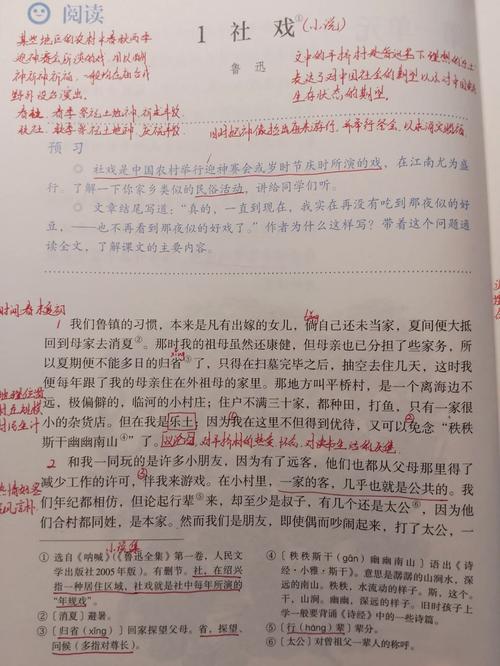 阅读
1 社戏①(小说)
鲁迅
某些地区的农村中春秋两季
迎神赛会所演的戏,用以酬
神祈福,一般的在庙台或
野外设台演出。
春社:春季祭祀土地神,祈求丰收
秋社:秋季祭祀土地神,庆祝丰收
文中的平桥村是鲁迅笔下理想的乐土
表达了对中国社会的期望以及对中国
生存状态的期望。
预习
○ 社戏是中国农村举行迎神赛会或岁时节庆时所演的戏,在江南尤为盛
行。了解一下你家乡类似的民俗活动,讲给同学们听。
○ 文章结尾写道:“真的,一直到现在,我实在再没有吃到那夜似的好
豆,——也不再看到那夜似的好戏了。”作者为什么这样写?带着这个问题通
读全文,了解课文的主要内容。
1 我们鲁镇的习惯,本来是凡有出嫁的女儿,倘自己还未当家,夏间便大抵
回到母家去消夏②。那时我的祖母虽然还康健,但母亲也已分担了些家务,所
以夏期便不能多日的归省③了,只得在扫墓完毕之后,抽空去住几天,这时我
便每年跟了我的母亲住在外祖母的家里。那地方叫平桥村,是一个离海边不
远,极偏僻的,临河的小村庄;住户不满三十家,都种田,打鱼,只有一家很
小的杂货店。但在我是乐土:因为我在这里不但得到优待,又可以免念“秩秩
斯干幽幽南山④”了。
2 和我一同玩的是许多小朋友,因为有了远客,他们也都从父母那里得了
减少工作的许可,伴我来游戏。在小村里,一家的客,几乎也就是公共的。我
们年纪都相仿,但论起行辈⑤来,却至少是叔子,有几个还是太公⑥,因为他
们合村都同姓,是本家。然而我们是朋友,即使偶而吵闹起来,打了太公,一
小说集
① 选自《呐喊》(《鲁迅全集》第一卷,人民文
学出版社2005年版)。有删节。社,在绍兴
指一种居住区域,社戏就是社中每年所演的
“年规戏”。
② 〔消夏〕避暑。
③ 〔归省(xǐng)〕回家探望父母。省,探望、
问候(多指对尊长)。
④ 〔秩秩斯干(gān)幽幽南山〕语出《诗
经·小雅·斯干》。意思是潺潺的山涧水,深
远的南山。秩秩,水流动的样子。斯,这个。
干,山涧。幽幽,深远的样子。旧时孩子上
学一般要背诵《诗经》中的一些诗篇。
⑤ 〔行(háng)辈〕辈分。
⑥ 〔太公〕对曾祖父一辈人的称呼。